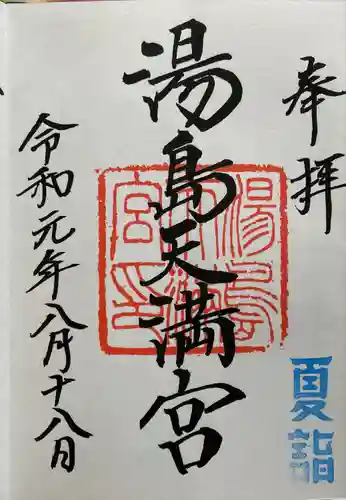 奉拝
夏詣
湯島天満宮
湯島天満宮印
令和元年八月十八日